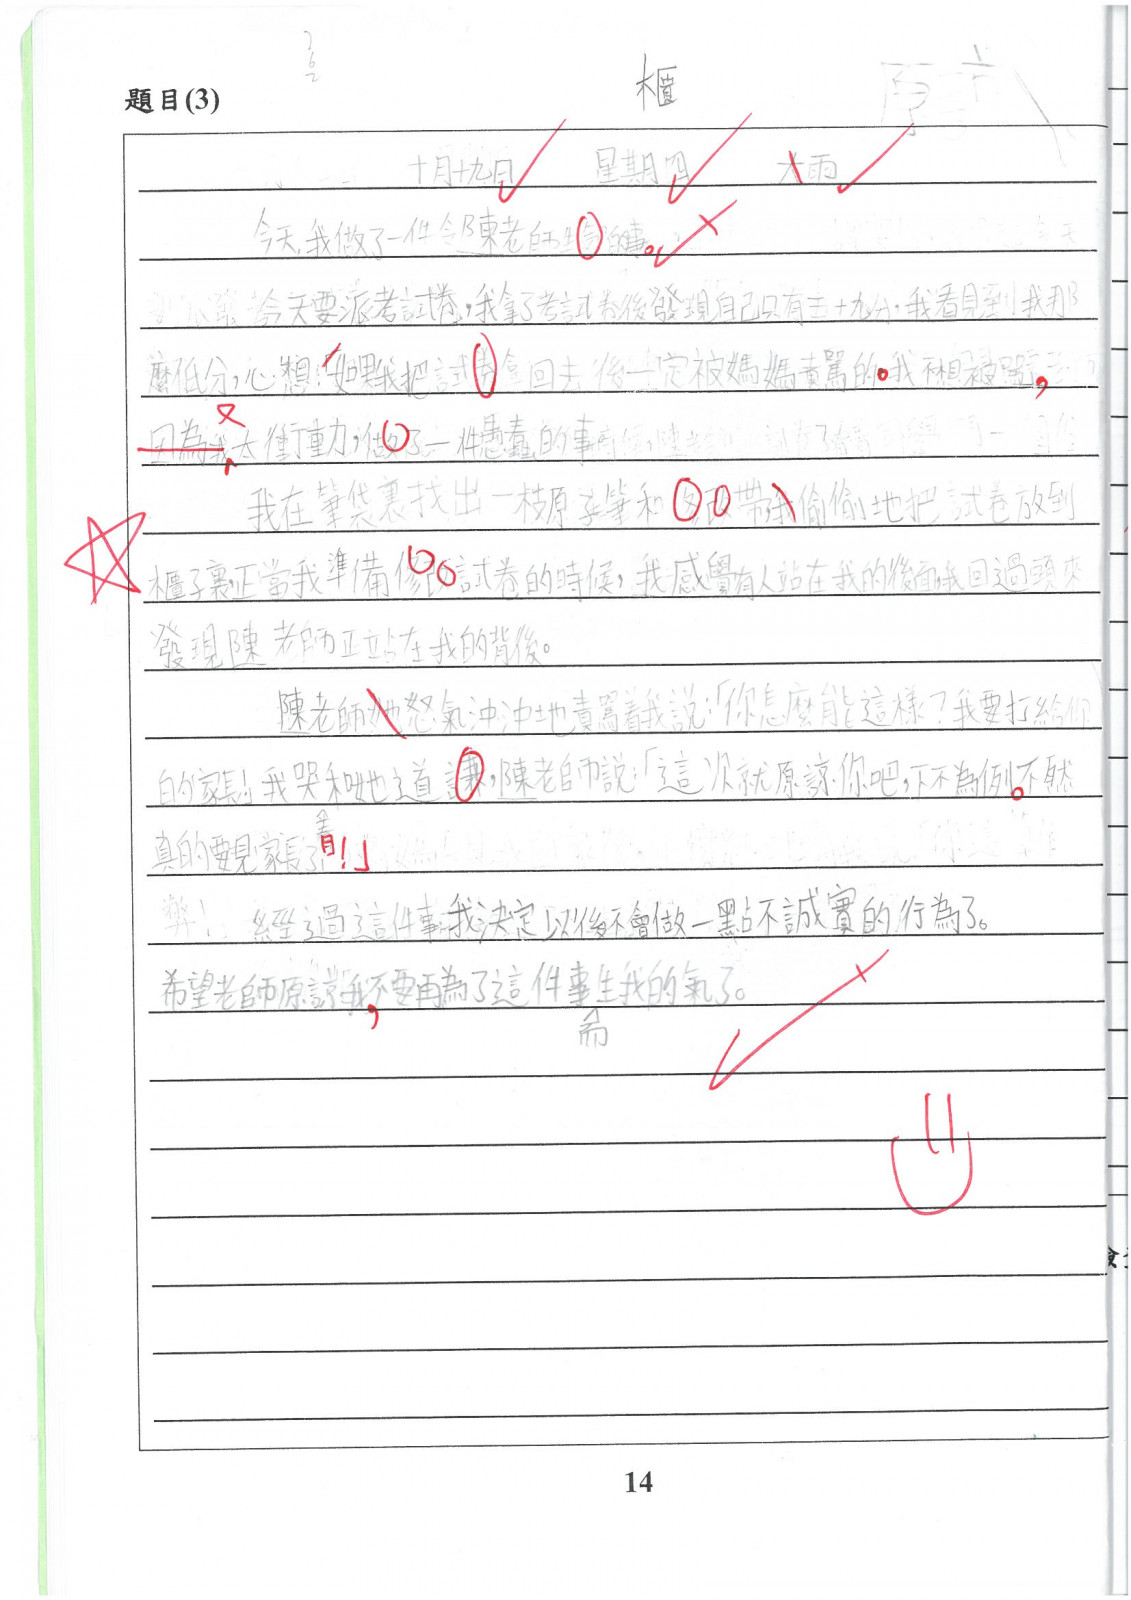 櫃
題目(3)
十月十九日 星期四 大雨
今天,我做了一件令陳老師生氣的事。
今天要派考試卷,我拿了考試卷後發現自己只有三十九分,我看見到我那
麼低分,心想:「如果我把試卷拿回去後一定被媽媽責罵的。我不想被罵,
因為我太衝動,做了一件愚蠢的事
我在筆袋裏找出一枝原子筆和改帶我偷偷地把試卷放到
櫃子裏,正當我準備修改試卷的時候,我感覺有人站在我的後面,我回過頭來
發現陳老師正站在我的背後。
陳老師她怒氣沖沖地責罵着我說:「你怎麼能這樣?我要打給你
的家長!我哭和她道謙,陳老師說:「這次就原諒你吧,下不為例。不然
真的要見家長了!」
弊!經過這件事,我決定以後不會做一點不誠實的行為了。
希望老師原諒我,不要再為了這件事生我的氣了。
而
14